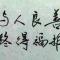 为人良善
终得福报